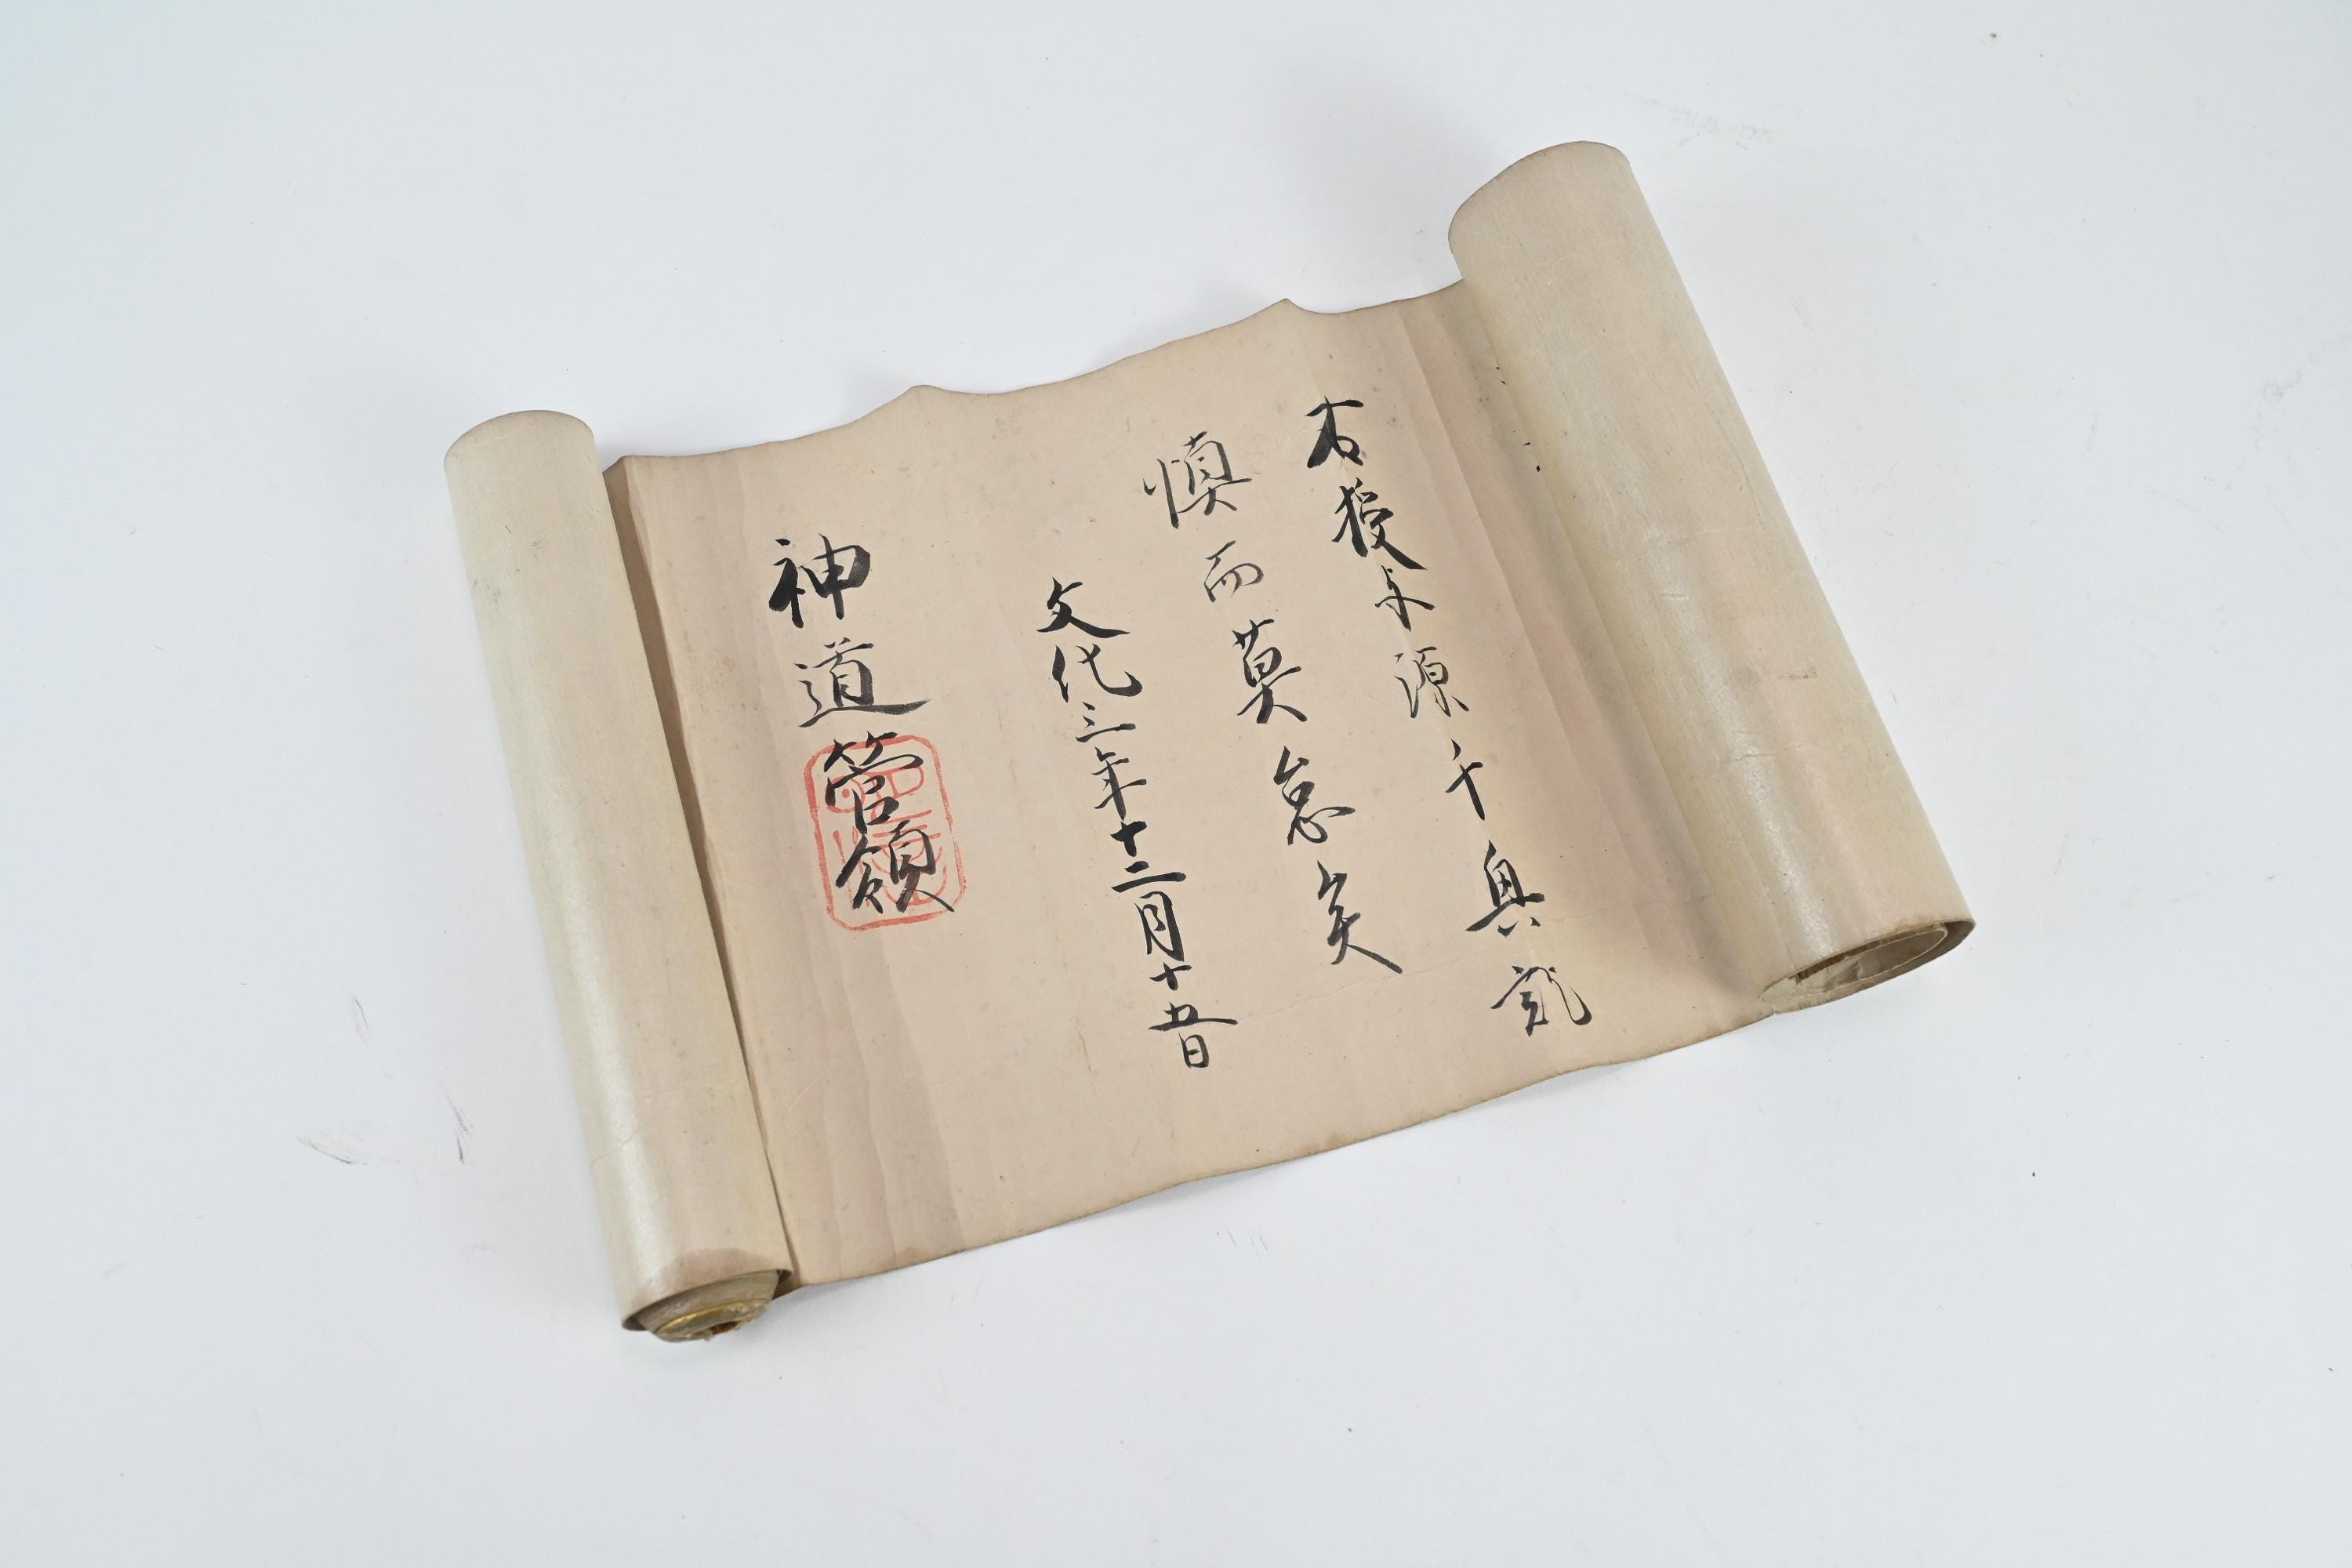 右授与源千訖
慎而莫怠矣
文化三年十二月十五日
神道管領